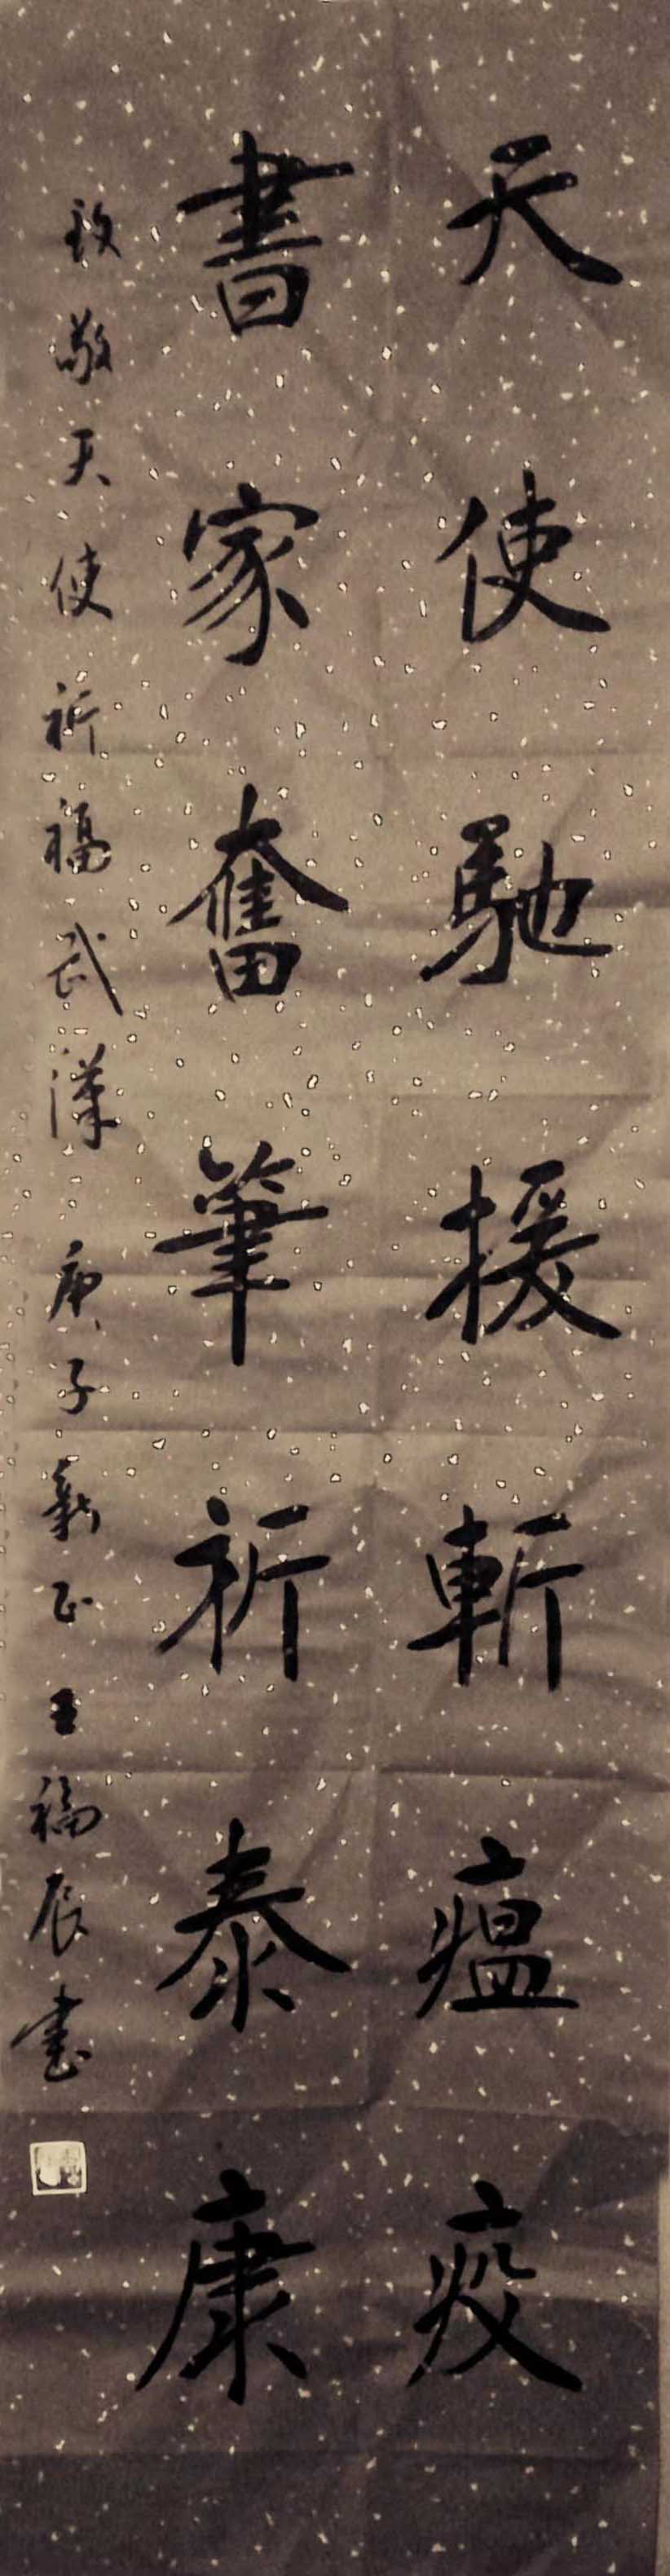 天使馳援斬瘟疫
書家奮筆祈泰康
致敬天使祈福武漢 庚子新正 王福辰书